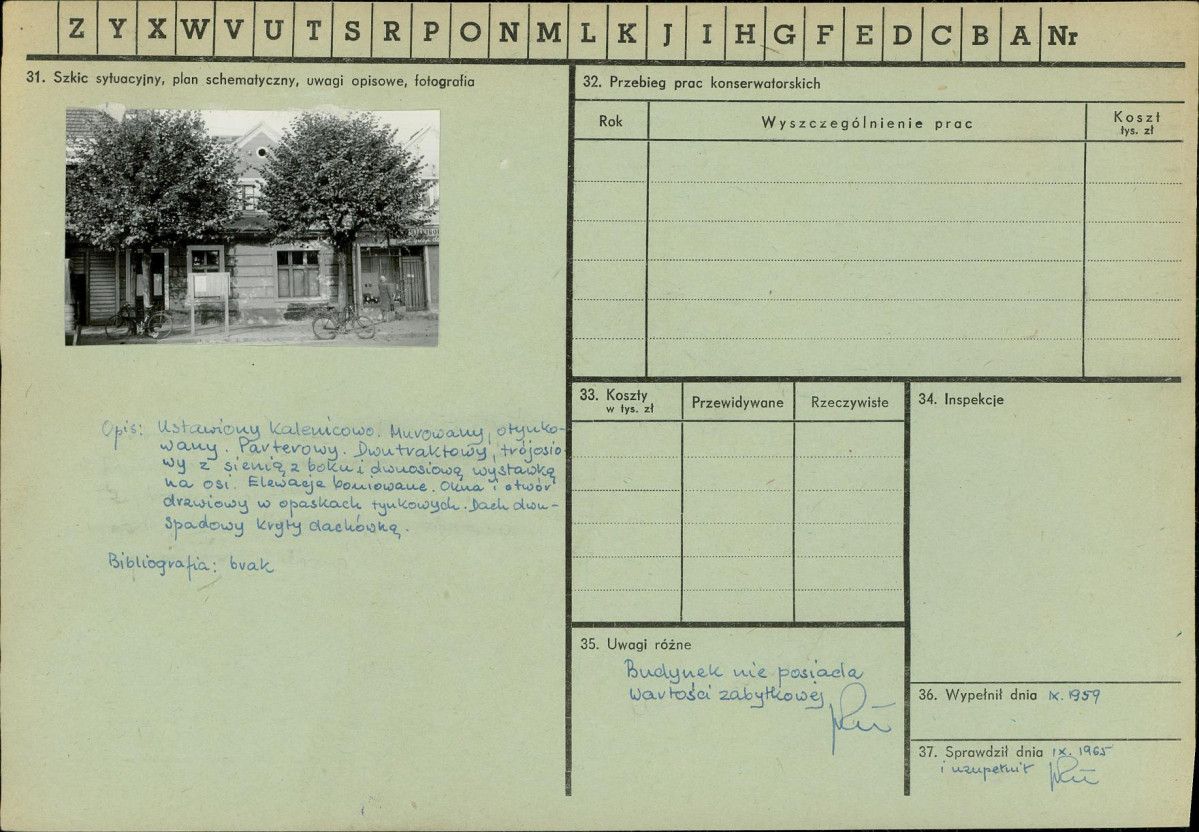 Z Y X W V U T S R P O N M L K J I H G F E D C B A Nr
31. Szkic sytuacyjny, plan schematyczny, uwagi opisowe, fotografia
Opis: Ustawiony Kalenicowo. Murowany, otynko-
wany. Parterowy. Dwutraktowy, trójosio-
wy z sienią z boku i dwuosiową wystawką
na osi. Elewacje boniowane. Okna i otwór
drzwiowy w opaskach tynkowych. Dach dwu-
spadowy kryty dachówką.
Bibliografia: brak
32. Przebieg prac konserwatorskich
Rok Wyszczególnienie prac Koszt
tys. zł
33. Koszty
w tys. zł Przewidywane Rzeczywiste
34. Inspekcje
35. Uwagi różne
Budynek nie posiada
wartości zabytkowej
36. Wypełnił dnia IX. 1959
37. Sprawdził dnia IX. 1965
i uzupełnił